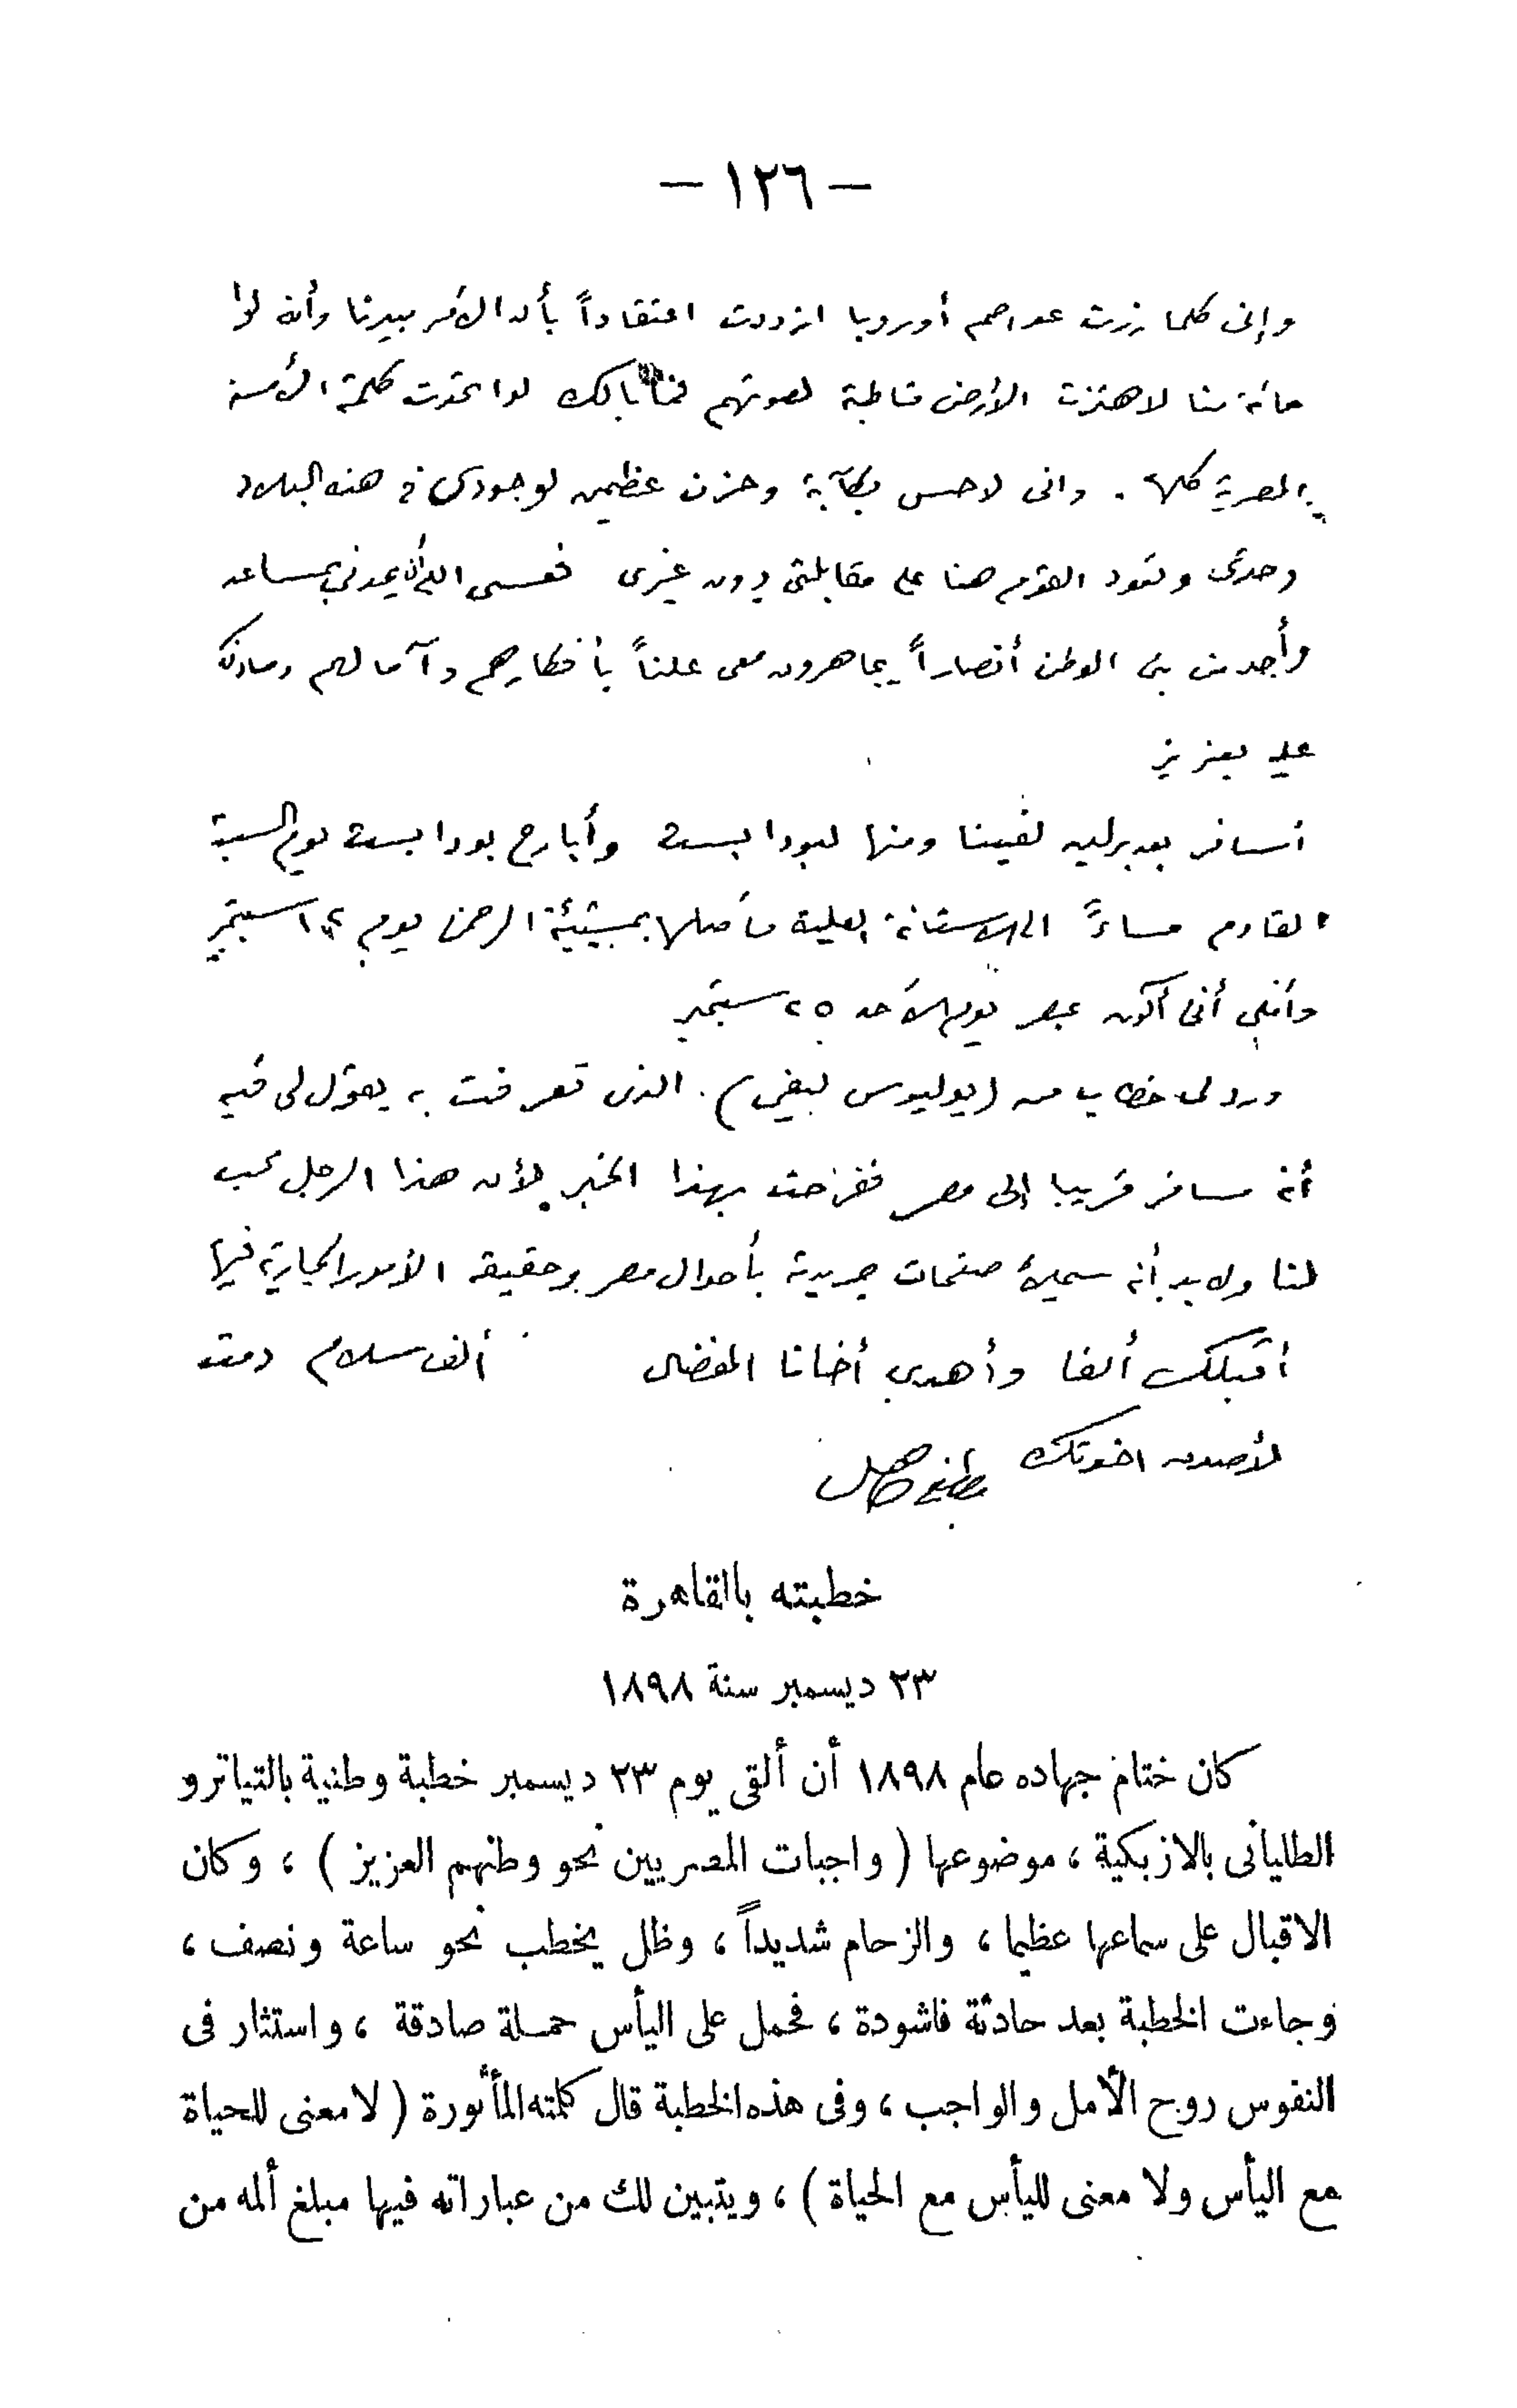 — ١٢٦ —
وإنى كلما زرت عواصم أوروبا ازددت اعتقاداً بأن الأمر بيدنا وأنه لو
مائة منا لاهتزت الأرض قاطبة لصوتهم فما بالك لو اتحدت كلمة الأمة
المصرية كلها . وانى لاحس بكآبة وحزن عظيمين لوجودى فى هذه البلاد
وحدى وتعود القوم هنا على مقابلتى دون غيرى فعسى الله أن يمدنى بمساعد
وأجد من بنى الوطن أنصاراً يجاهرون معى علناً بأفكارهم وآمالهم وما ذلك
عليه بعزيز
أسافر بعد برلين لفينا ومنها لبودابست وأبارح بودابست يوم السبت
القادم مساءً الى الاستانة العلية فأصلها بمشيئة الرحمن يوم ١٢ سبتمبر
وأنى أكون بمصر يوم الأحد ٢٥ سبتمبر
ورد لى خطاب من (يوليوس ) . الذى تعرفت به يقول لى فيه
أنه مسافر قريبا إلى مصر ففرحت بهذا الخبر لأن هذا الرجل محب
لنا ولا بد أنه سيملأ صفحات جريدته بأحوال مصر وحقيقة الأمور الجارية فيها
أقبلك ألفا وأهدى أخانا المفضال ألف سلام دمت
لأصدق اخوتك مصطفى كامل
خطبته بالقاهرة
٢٣ ديسمبر سنة ١٨٩٨
كان ختام جهاده عام ١٨٩٨ أن ألقى يوم ٢٣ ديسمبر خطبة وطنية بالتياترو
الطليانى بالازبكية ، موضوعها ( واجبات المصريين نحو وطنهم العزيز ) ، وكان
الاقبال على سماعها عظيما ، والزحام شديداً ، وظل يخطب نحو ساعة ونصف ،
وجاءت الخطبة بعد حادثة فاشودة ، فحمل على اليأس حملة صادقة ، واستثار فى
النفوس روح الأمل والواجب ، وفى هذه الخطبة قال كلمته المأثورة ( لا معنى للحياة
مع اليأس ولا معنى لليأس مع الحياة ) ، ويتبين لك من عباراته فيها مبلغ ألمه من